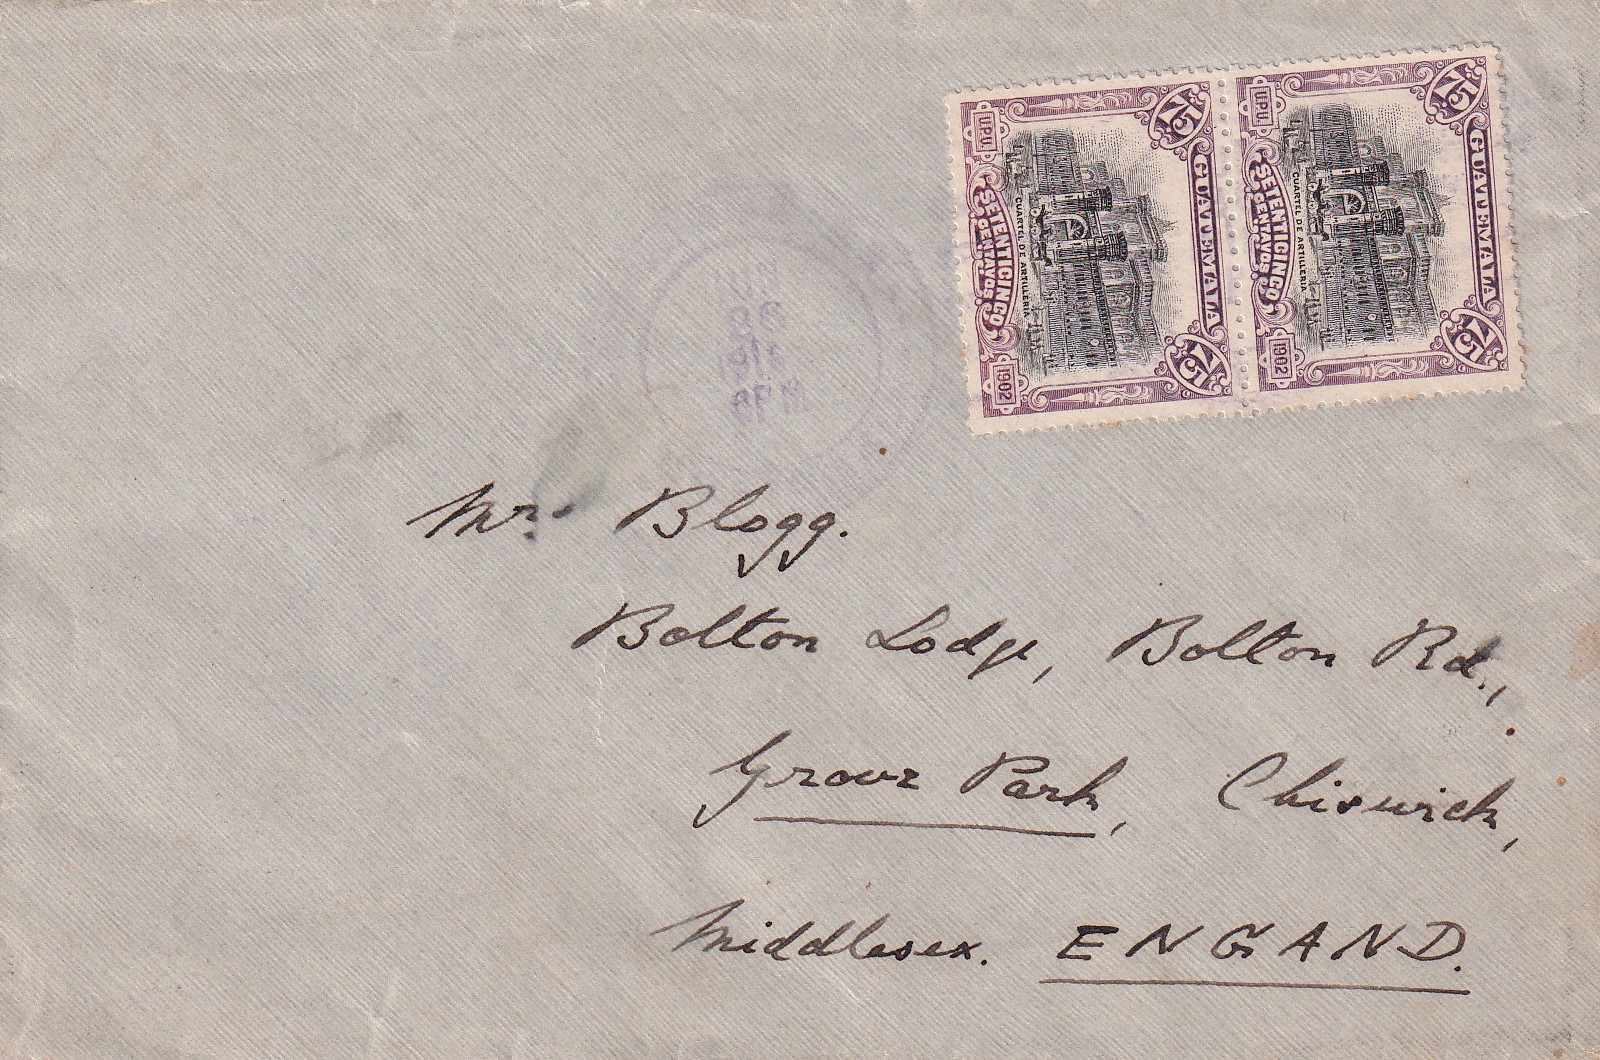 75
GUATEMALA
75
U.P.U.
SETENTICINCO
CENTAVOS
CUARTEL DE ARTILLERIA
1902
75
GUATEMALA
75
U.P.U.
SETENTICINCO
CENTAVOS
CUARTEL DE ARTILLERIA
1902
Mr. Blogg.
Bolton Lodge, Bolton Rd.,
Grove Park, Chiswick,
Middlesex. ENGAND.